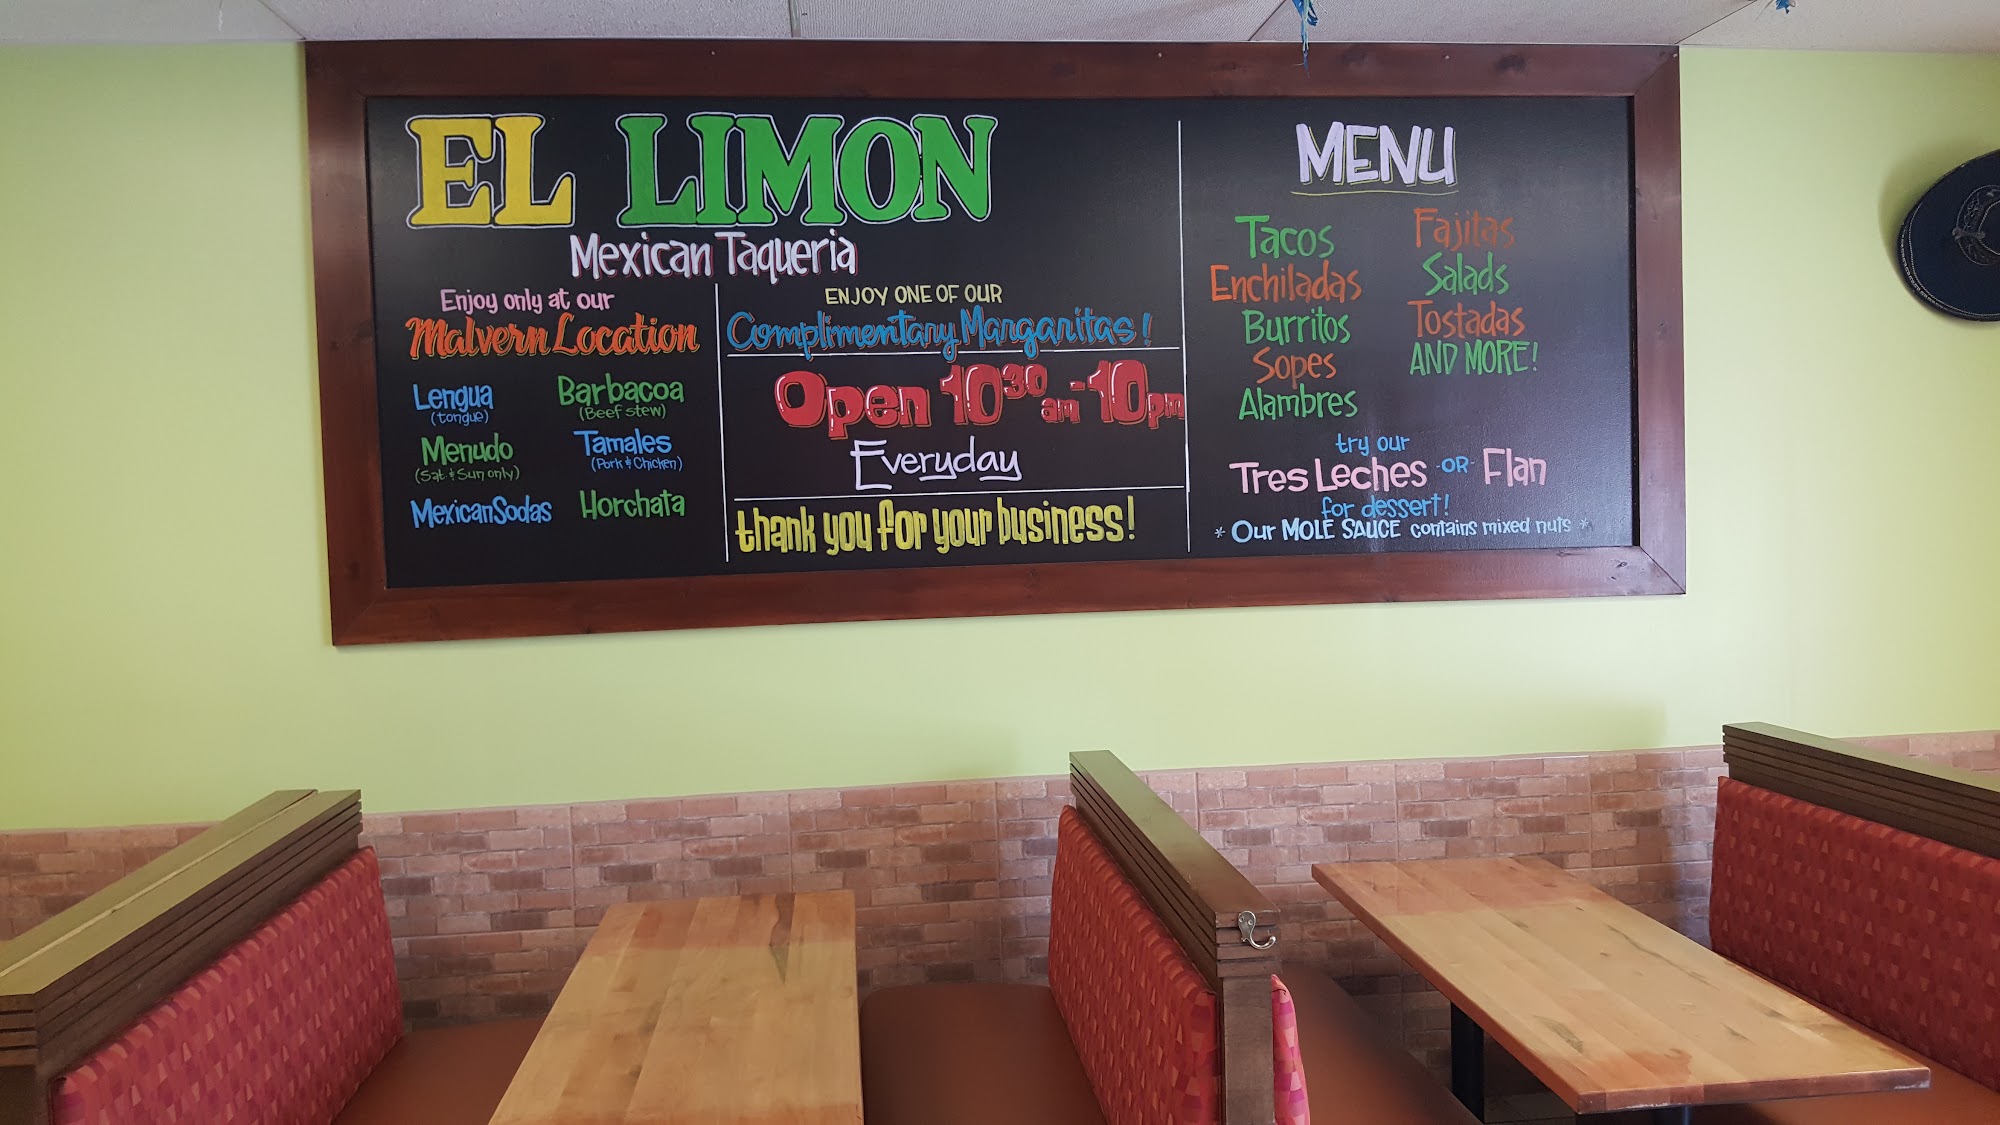 EL LIMON
Mexican Taqueria
Enjoy only at our
Malvern Location
Lengua
(tongue)
Barbacoa
(Beef stew)
Menudo
(Sat & Sun only)
Tamales
(Pork & Chicken)
Mexican Sodas
Horchata
ENJOY ONE OF OUR
Complimentary Margaritas!
Open 10³⁰am-10pm
Everyday
thank you for your business!
MENU
Tacos
Enchiladas
Burritos
Sopes
Alambres
Fajitas
Salads
Tostadas
AND MORE!
try our
Tres Leches -OR- Flan
for dessert!
* Our MOLE SAUCE contains mixed nuts *